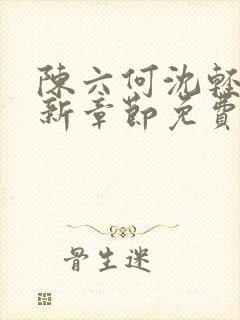 陳六何沈輕
新章節免費
骨生迷